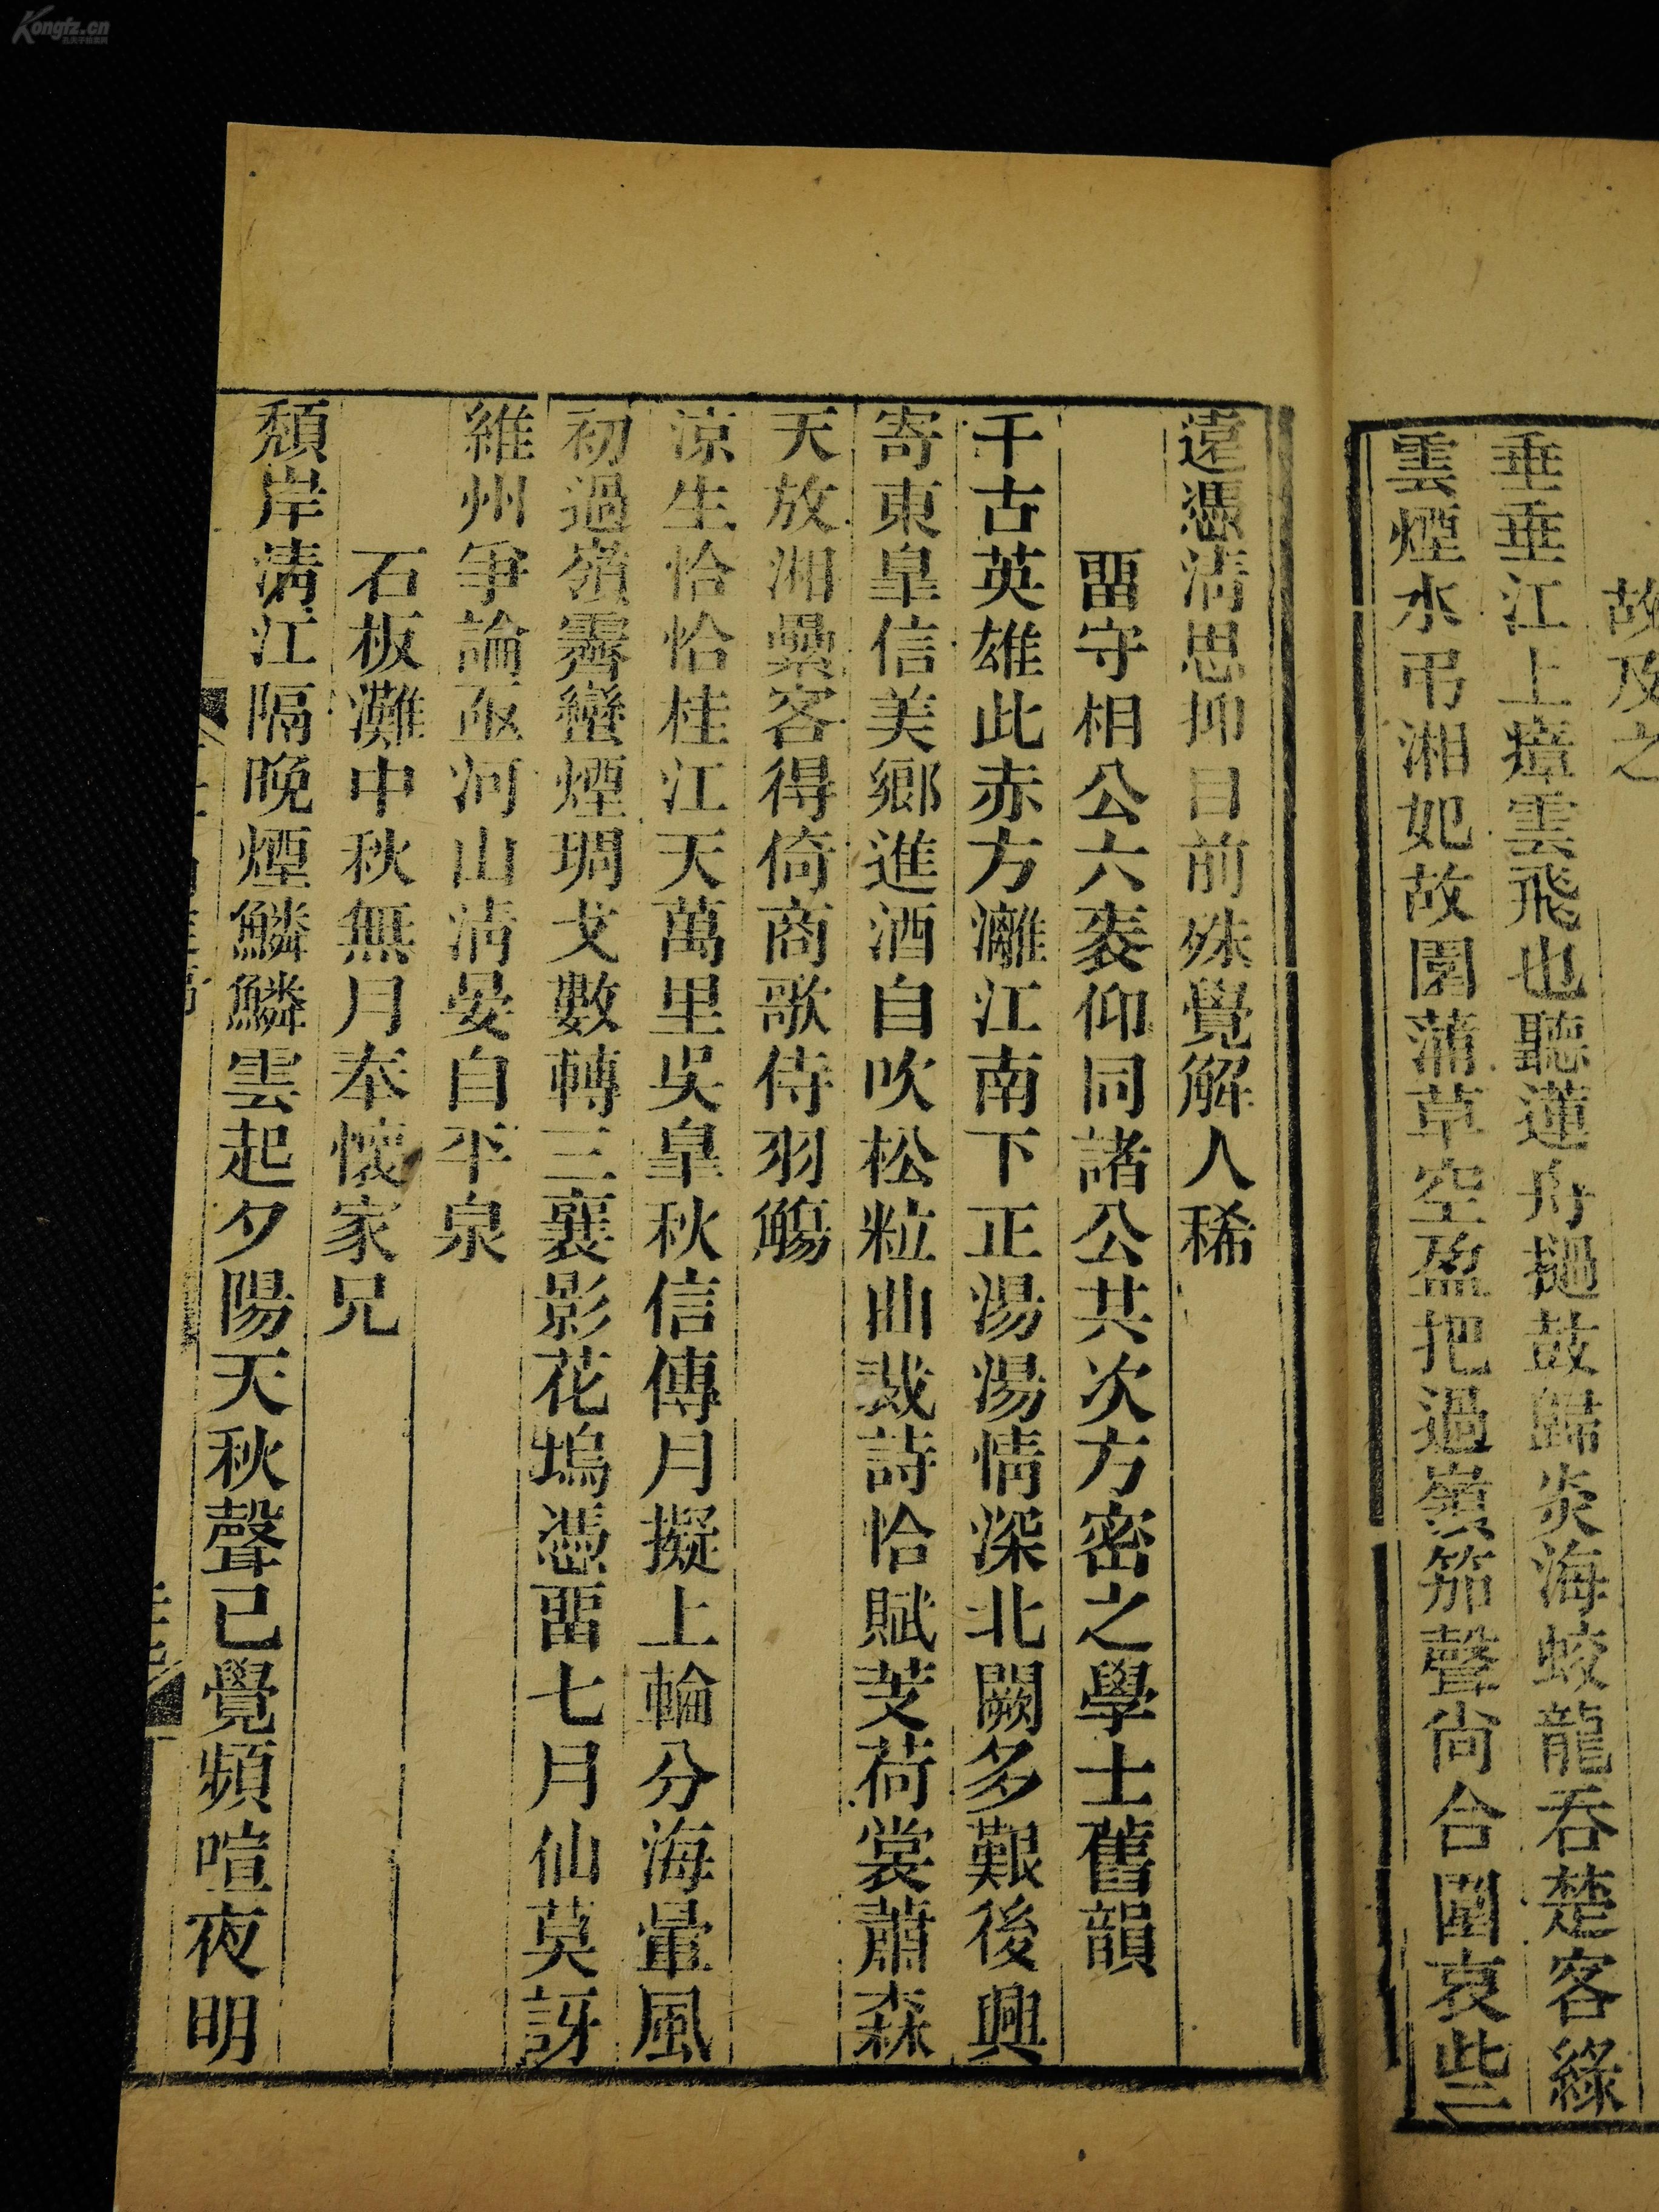 故及之
垂垂江上瘴雲飛也聽蓮舟撾鼓歸炎海蛟龍吞楚客綠
雲煙水弔湘妃故園蒲草空盈把過嶺笳聲尚合圍哀些二
遠憑淸思抑目前殊覺解人稀
畱守相公六袠仰同諸公共次方密之學士舊韻
千古英雄此赤方灕江南下正湯湯情深北闕多艱後興
寄東皐信美鄉進酒自吹松粒曲裁詩恰賦芰荷裳蕭森
天放湘纍客得倚商歌侍羽觴
涼生恰恰桂江天萬里吳皐秋信傳月擬上輪分海暈風
初過嶺霽蠻煙琱戈數轉三襄影花塢憑畱七月仙莫訝
維州爭論亟河山淸晏自平泉
石板灘中秋無月奉懷家兄
頹岸淸江隔晚煙鱗鱗雲起夕陽天秋聲已覺頻喧夜明
Kongfz.cn